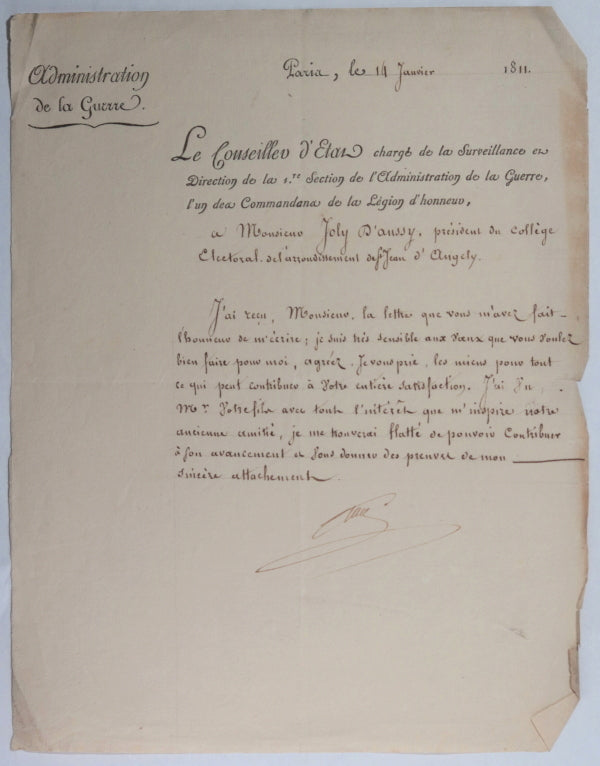 Administration
de la Guerre.
Paris, le 14 Janvier 1811.
Le Conseiller d'Etat chargé de la Surveillance et
Direction de la 1.re Section de l'Administration de la Guerre,
l'un des Commandans de la Légion d'honneur,
a Monsieur Joly D'aussy, président du Collège
Electoral de l'arrondissement de St Jean d'Angely.
J'ai reçu, Monsieur, la lettre que vous m'avez fait
l'honneur de m'écrire; je suis très sensible aux vœux que vous voulez
bien faire pour moi, agréez, Je vous prie, les miens pour tout
ce qui peut contribuer à votre entière satisfaction. J'ai vu,
Mr. votre fils avec tout l'intérêt que m'inspire notre
ancienne amitié, je me trouverai flatté de pouvoir Contribuer
à son avancement et vous donner des preuves de mon
sincère attachement.